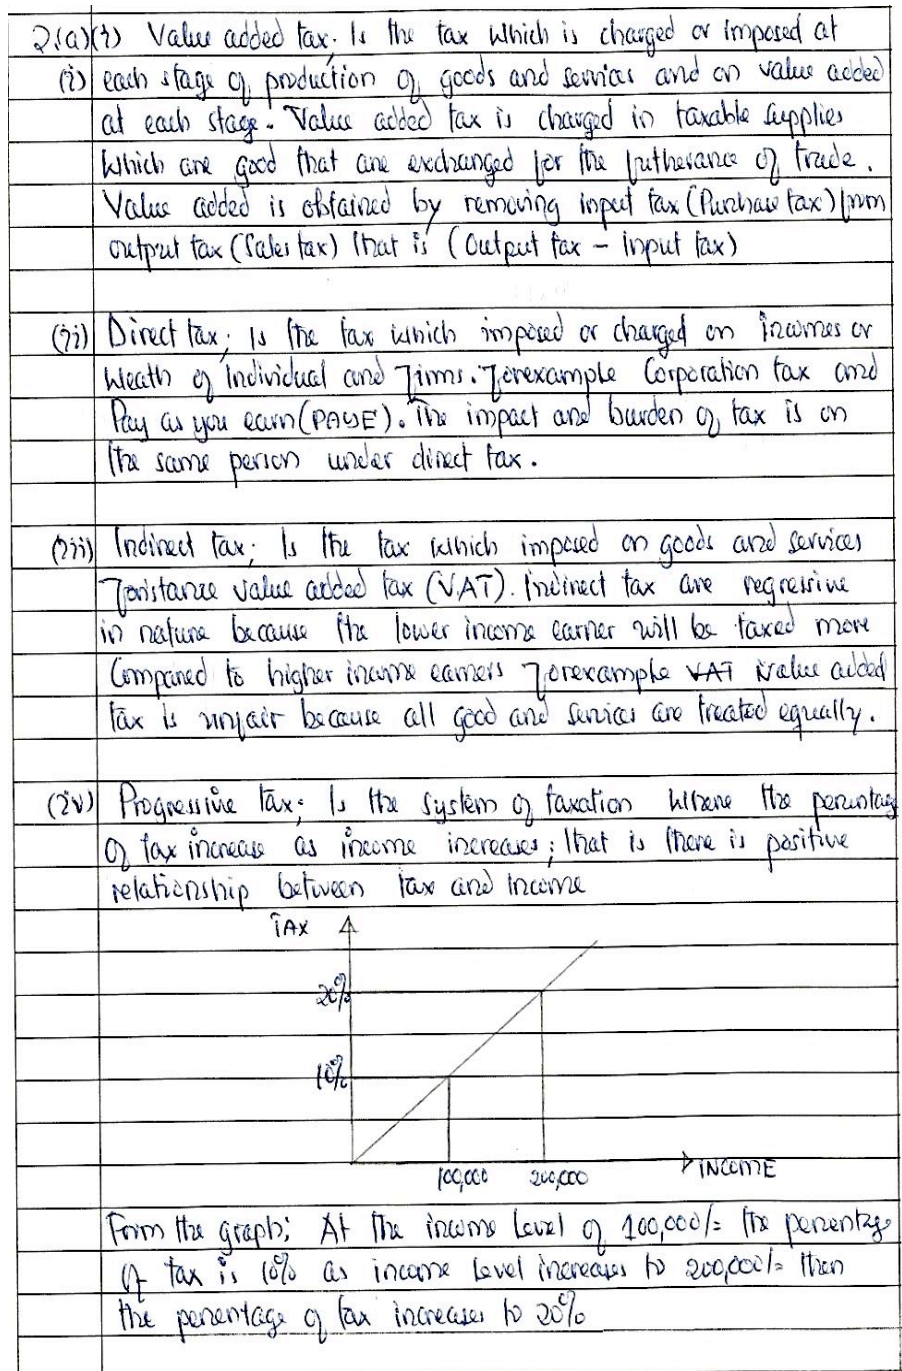 2.(a)(i) Value added tax; Is the tax which is charged or imposed at
(i) each stage of production of goods and services and on value added
at each stage. Value added tax is charged in taxable supplies
which are good that are exchanged for the furtherance of trade.
Value added is obtained by removing input tax (Purchase tax) from
output tax (Sales tax) that is (Output tax - input tax)
(ii) Direct tax; Is the tax which imposed or charged on incomes or
Weath of individual and firms. Forexample Corporation tax and
Pay as you earn (PAYE). The impact and burden of tax is on
the same person under direct tax.
(iii) Indirect tax; Is the tax which imposed on goods and services
Foristance value added tax (VAT). Indirect tax are regressive
in nature because the lower income earner will be taxed more
Compared to higher income earners Forexample VAT Value added
tax is unfair because all good and services are treated equally.
(iv) Progressive tax; Is the system of taxation where the percentag
of tax increase as income increases; that is there is positive
relationship between tax and income
TAX
20%
10%
100,000 200,000 INCOME
From the graph; At the income level of 100,000/= the percentage
of tax is 10% as income level increases to 200,000/= then
the percentage of tax increases to 20%